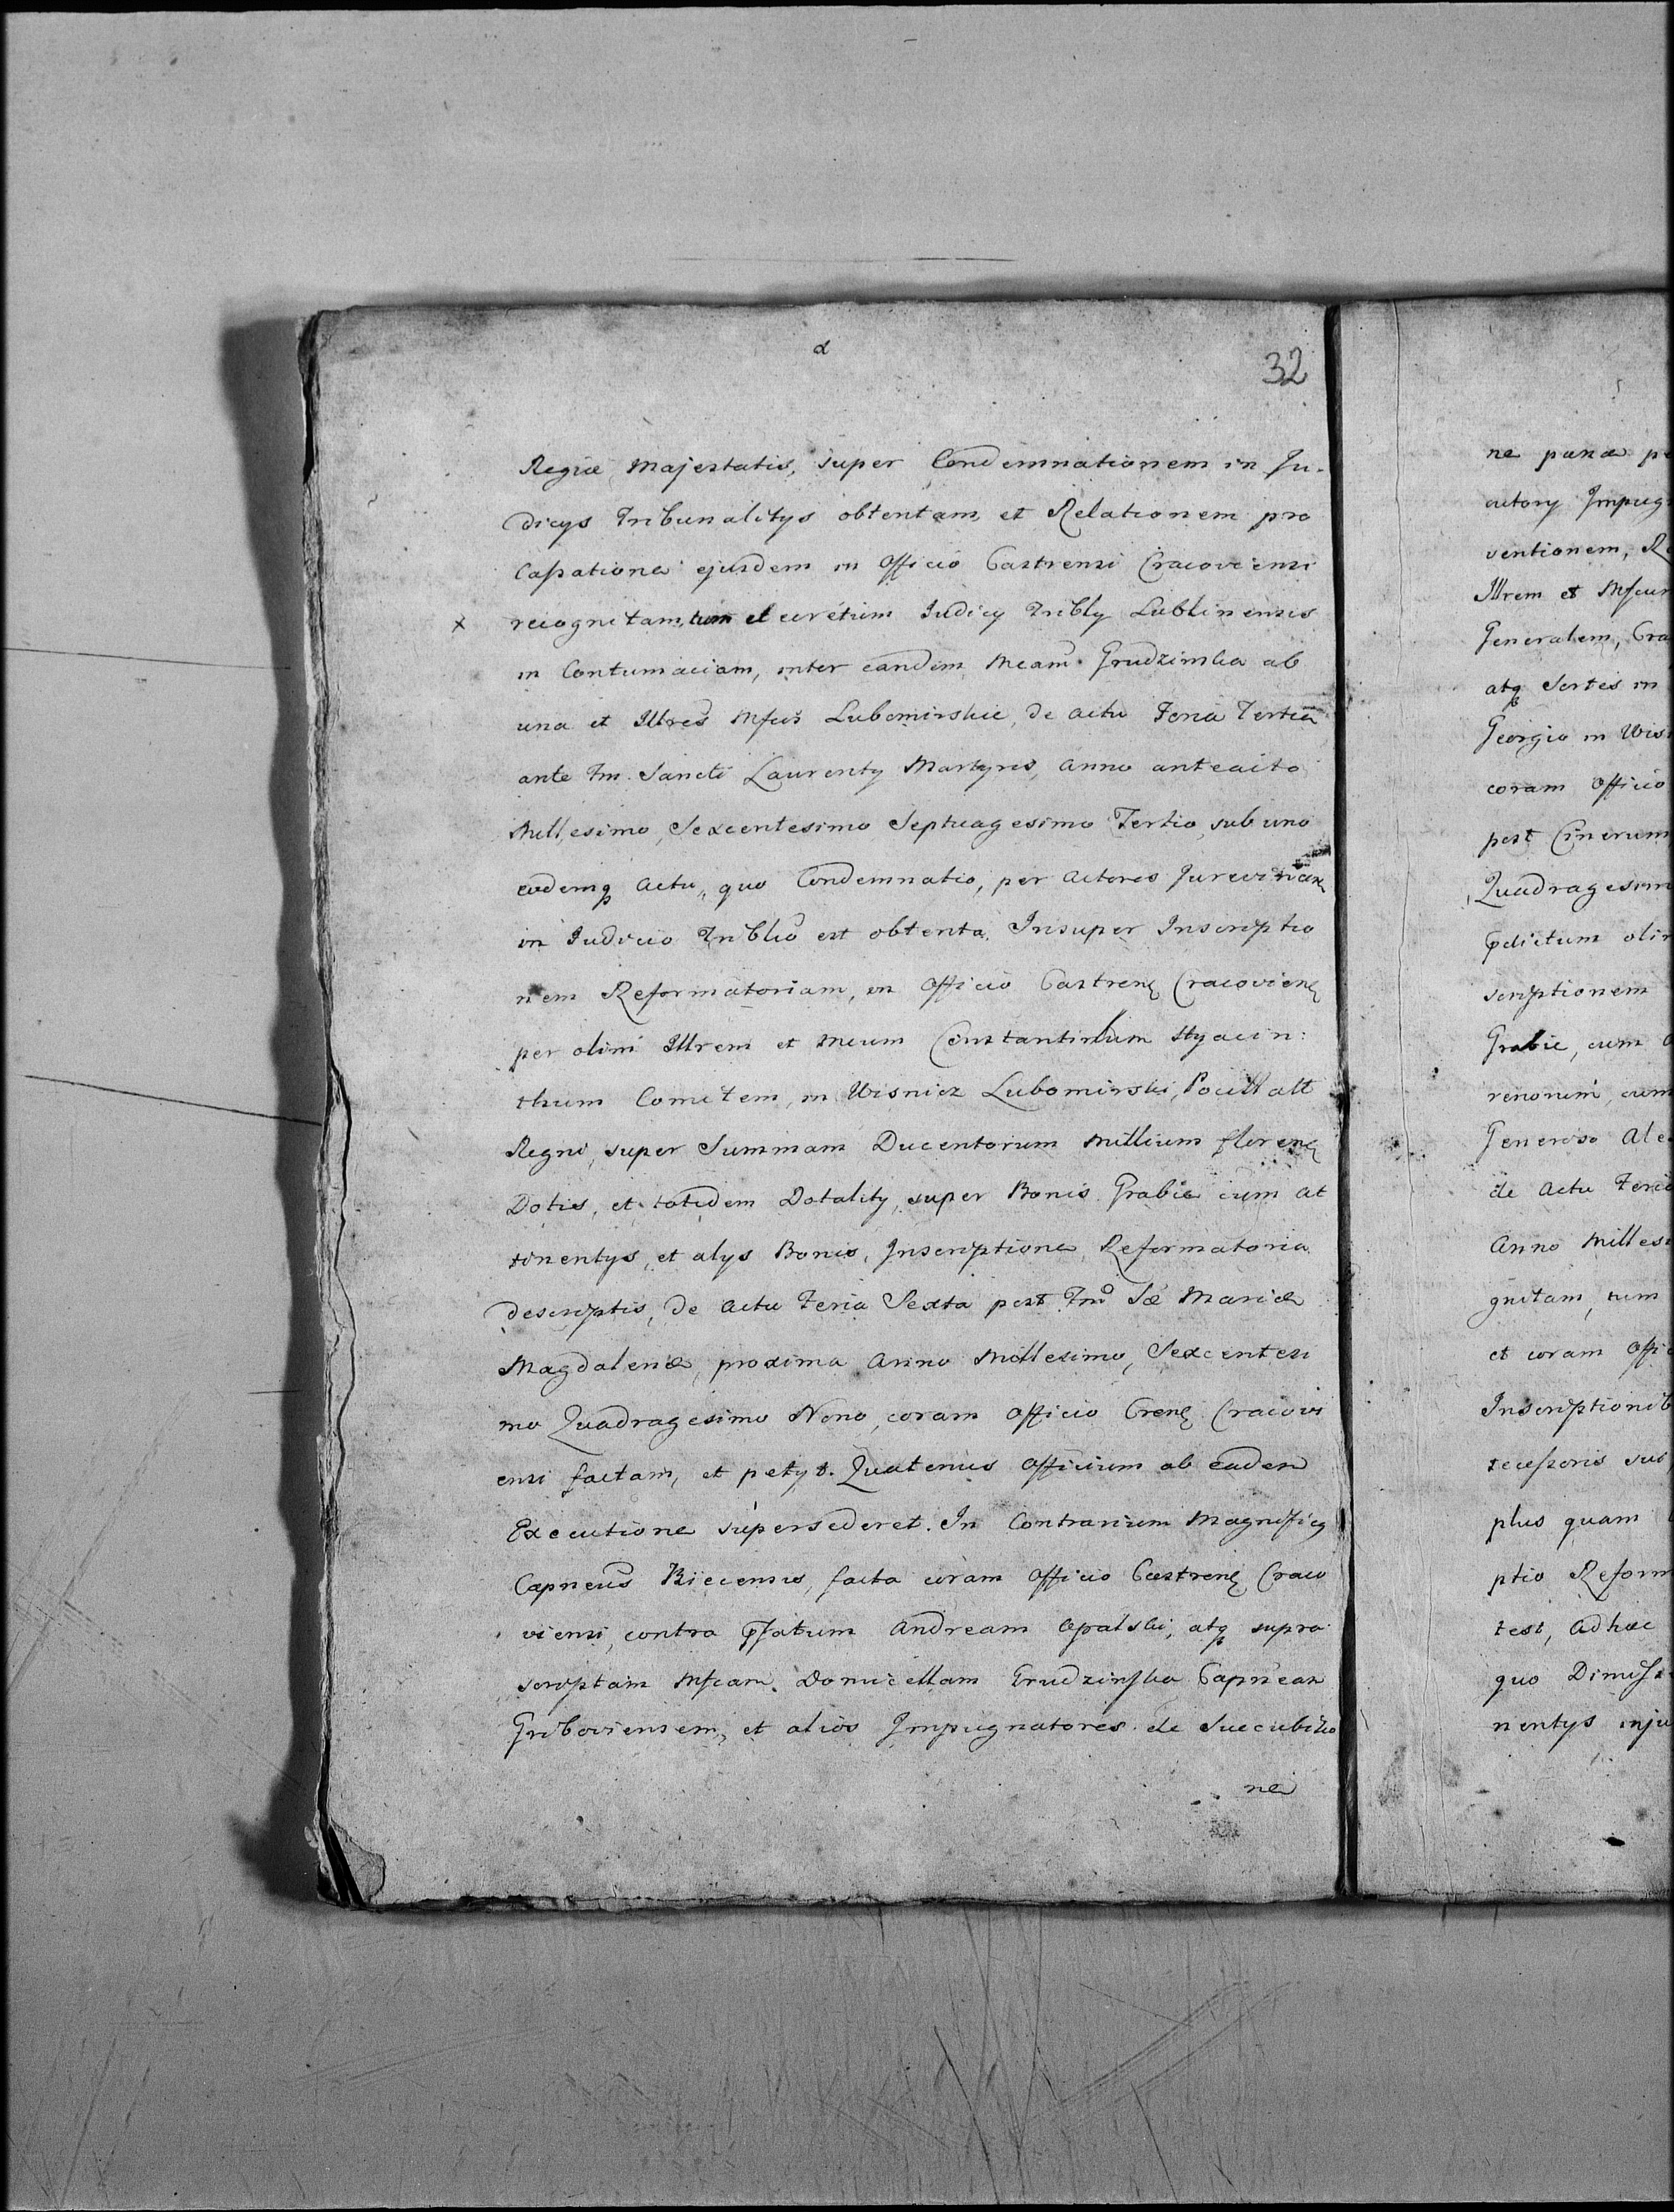 32
Regiæ Majestatis, super Condemnationem in Ju-
dicys Tribunalitys obtentam, et Relationem pro
Cassatione ejusdem in Officio Castrensi Cracoviensi
x recognitam, tum Judicy Tribly Lublinensis
in Contumaciam, inter eandem Mcam Grudzinska ab
una et Illres Mfcos Lubomirskie, de actu Feria Tertia
ante Fm. Sancti Laurenty Martyris, anno anteacto
Millesimo, Sexcentesimo Septuagesimo Tertio, sub uno
eodemq actu, quo Condemnatio, per actores
in Judicio Triblio est obtenta. Insuper Inscriptio
nem Reformatoriam, in Officio Castrens Cracoviens
per olim Illrem et Mcum Constantinum Hyacin:
thum Comitem, in Wisnicz Lubomirski, Pocill att
Regni, super Summam Ducentorum Millium floren
Dotis, et totidem Dotality, super Bonis Grabie cum at
tinentys, et alys Bonis, Inscriptione Reformatoria
descriptis, de actu Feria Sexta post Fm Sæ Mariæ
Magdalenæ, proxima Anno Millesimo, Sexcentesi
mo Quadragesimo Nono, coram Officio Crens Cracovi
ensi factam, et petyt. Quatenus Officium ab eadem
Executione supersederet. In Contrarium Magnificy
Capneus Biecensis, facta coram Officio Castrens Craco
viensi, contra pfatum Andream Opalski, atq supra
scriptam Mfcam. Domicellam Grudzinska Capnean
Griboviensem, et alios Impugnatores de Succubitio
ne
ne pœnæ
ventionem,
Illrem et
Generalem,
atq Sortes in
Georgio in
coram Officio
post Cinerum
Quadragesim
pdictum
scriptionem
Grabie, cum
renonem, cum
Generoso
de actu
Anno
gnitam, tum
et coram
tecessoris
plus quam
ptio
test, Ad hæc
quo
nentys